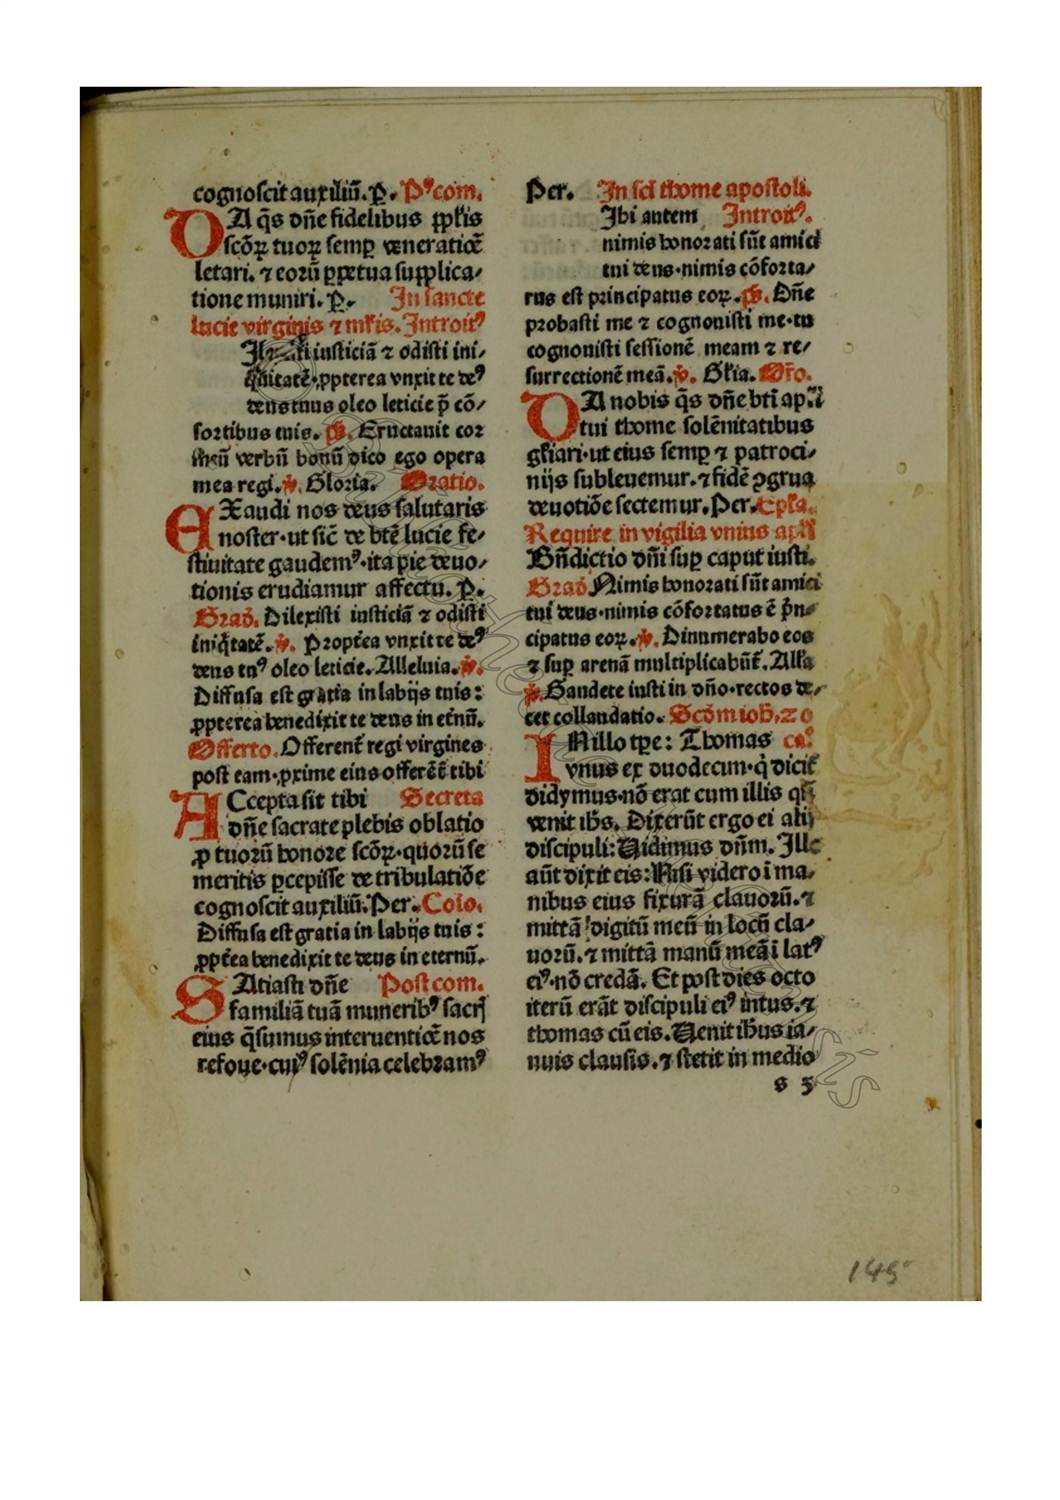 cognoscit auxiliū. ꝑ. Pꝰcom.
DA q̄s dn̄e fidelibus ꝓpl̓is
scōꝝ tuoꝝ semꝑ veneratiōe
letari. ⁊ eorū ꝑpetua supplica⸗
tione muniri. ꝑ. In sancte
lucie virginis ⁊ mr̄is. Introitꝰ
iusticiā ⁊ odisti ini⸗
quitatē·ꝓpterea vnxit te deꝰ
deus tuus oleo leticie p̄ cō⸗
sortibus tuis. p̄s. Eructauit cor
meū verbū bonū dico ego opera
mea regi. v̄. Gloria. Oratio.
EXaudi nos deus salutaris
noster·ut sic̄ de btē lucie fe⸗
stiuitate gaudemꝰ·ita pie deuo⸗
tionis erudiamur affectu. ꝑ.
Grad̄. Dilexisti iusticiā ⁊ odisti
iniq̄tatē. v̄. Propt̄ea vnxit te deꝰ
deus tuꝰ oleo leticie. Alleluia. v̄.
Diffusa est gratia in labijs tuis:
ꝓpterea benedixit te deus in et̄nū.
Offerto. Offerent̄ regi virgines
post eam·ꝓxime eius offerēt̄ tibi
ACcepta sit tibi Secreta
dn̄e sacrate plebis oblatio
ꝓ tuorū honore scōꝝ·quorū se
meritis ꝑcepisse de tribulatiōe
cognoscit auxiliū. Per. Cōio.
Diffusa est gratia in labijs tuis:
ꝓpt̄ea benedixit te deus in eternū.
SAtiasti dn̄e Post com.
familiā tuā muneribꝰ sacrꝭ
eius q̄sumus interuentiōe nos
refoue·cuiꝰ solēnia celebramꝰ
Per. In sc̄i thome apostoli.
Ihi autem Introitꝰ.
nimis honorati sūt amici
tui deus·nimis cōforta⸗
tus est principatus eoꝝ. p̄s. Dn̄e
probasti me ⁊ cognouisti me·tu
cognouisti sessionē meam ⁊ re⸗
surrectionē meā. v̄. Gl̓ia. Or̄o.
DA nobis q̄s dn̄e bt̄i apl̓i
tui thome solēnitatibus
gl̓iari·ut eius semꝑ ⁊ patroci⸗
nijs subleuemur. ⁊ fidē ꝯgrua
deuotiōe sectemur. Per. Epl̓a.
Require in vigilia vnius apl̓i
Bn̄dictio dn̄i suꝑ caput iusti.
Grad̄ Nimis honorati sūt amici
tui deus·nimis cōfortatus ē p̄n⸗
cipatus eoꝝ. v̄. Dinumerabo eos
⁊ suꝑ arenā multiplicabūt̄. All̓a
v̄. Gaudete iusti in dn̄o·rectos de⸗
cet collaudatio. Scd̄m ioh̄. 20
IN illo tp̄e: Thomas ca.
vnus ex duodecim·q̓ dicit̄
didymus·nō erat cum illis qn̄
venit ih̄s. Dixerūt ergo ei alij
discipuli: Uidimus dn̄m. Ille
aūt dixit eis: Nisi videro ī ma⸗
nibus eius fixurā clauorū. ⁊
mittā digitū meū in locū cla⸗
uorū. ⁊ mittā manū meā ī latꝰ
eiꝰ·nō credā. Et post dies octo
iterū erāt discipuli eiꝰ intus. ⁊
thomas cū eis. Uenit ih̄us ia⸗
nuis clausis. ⁊ stetit in medio
s 5
145